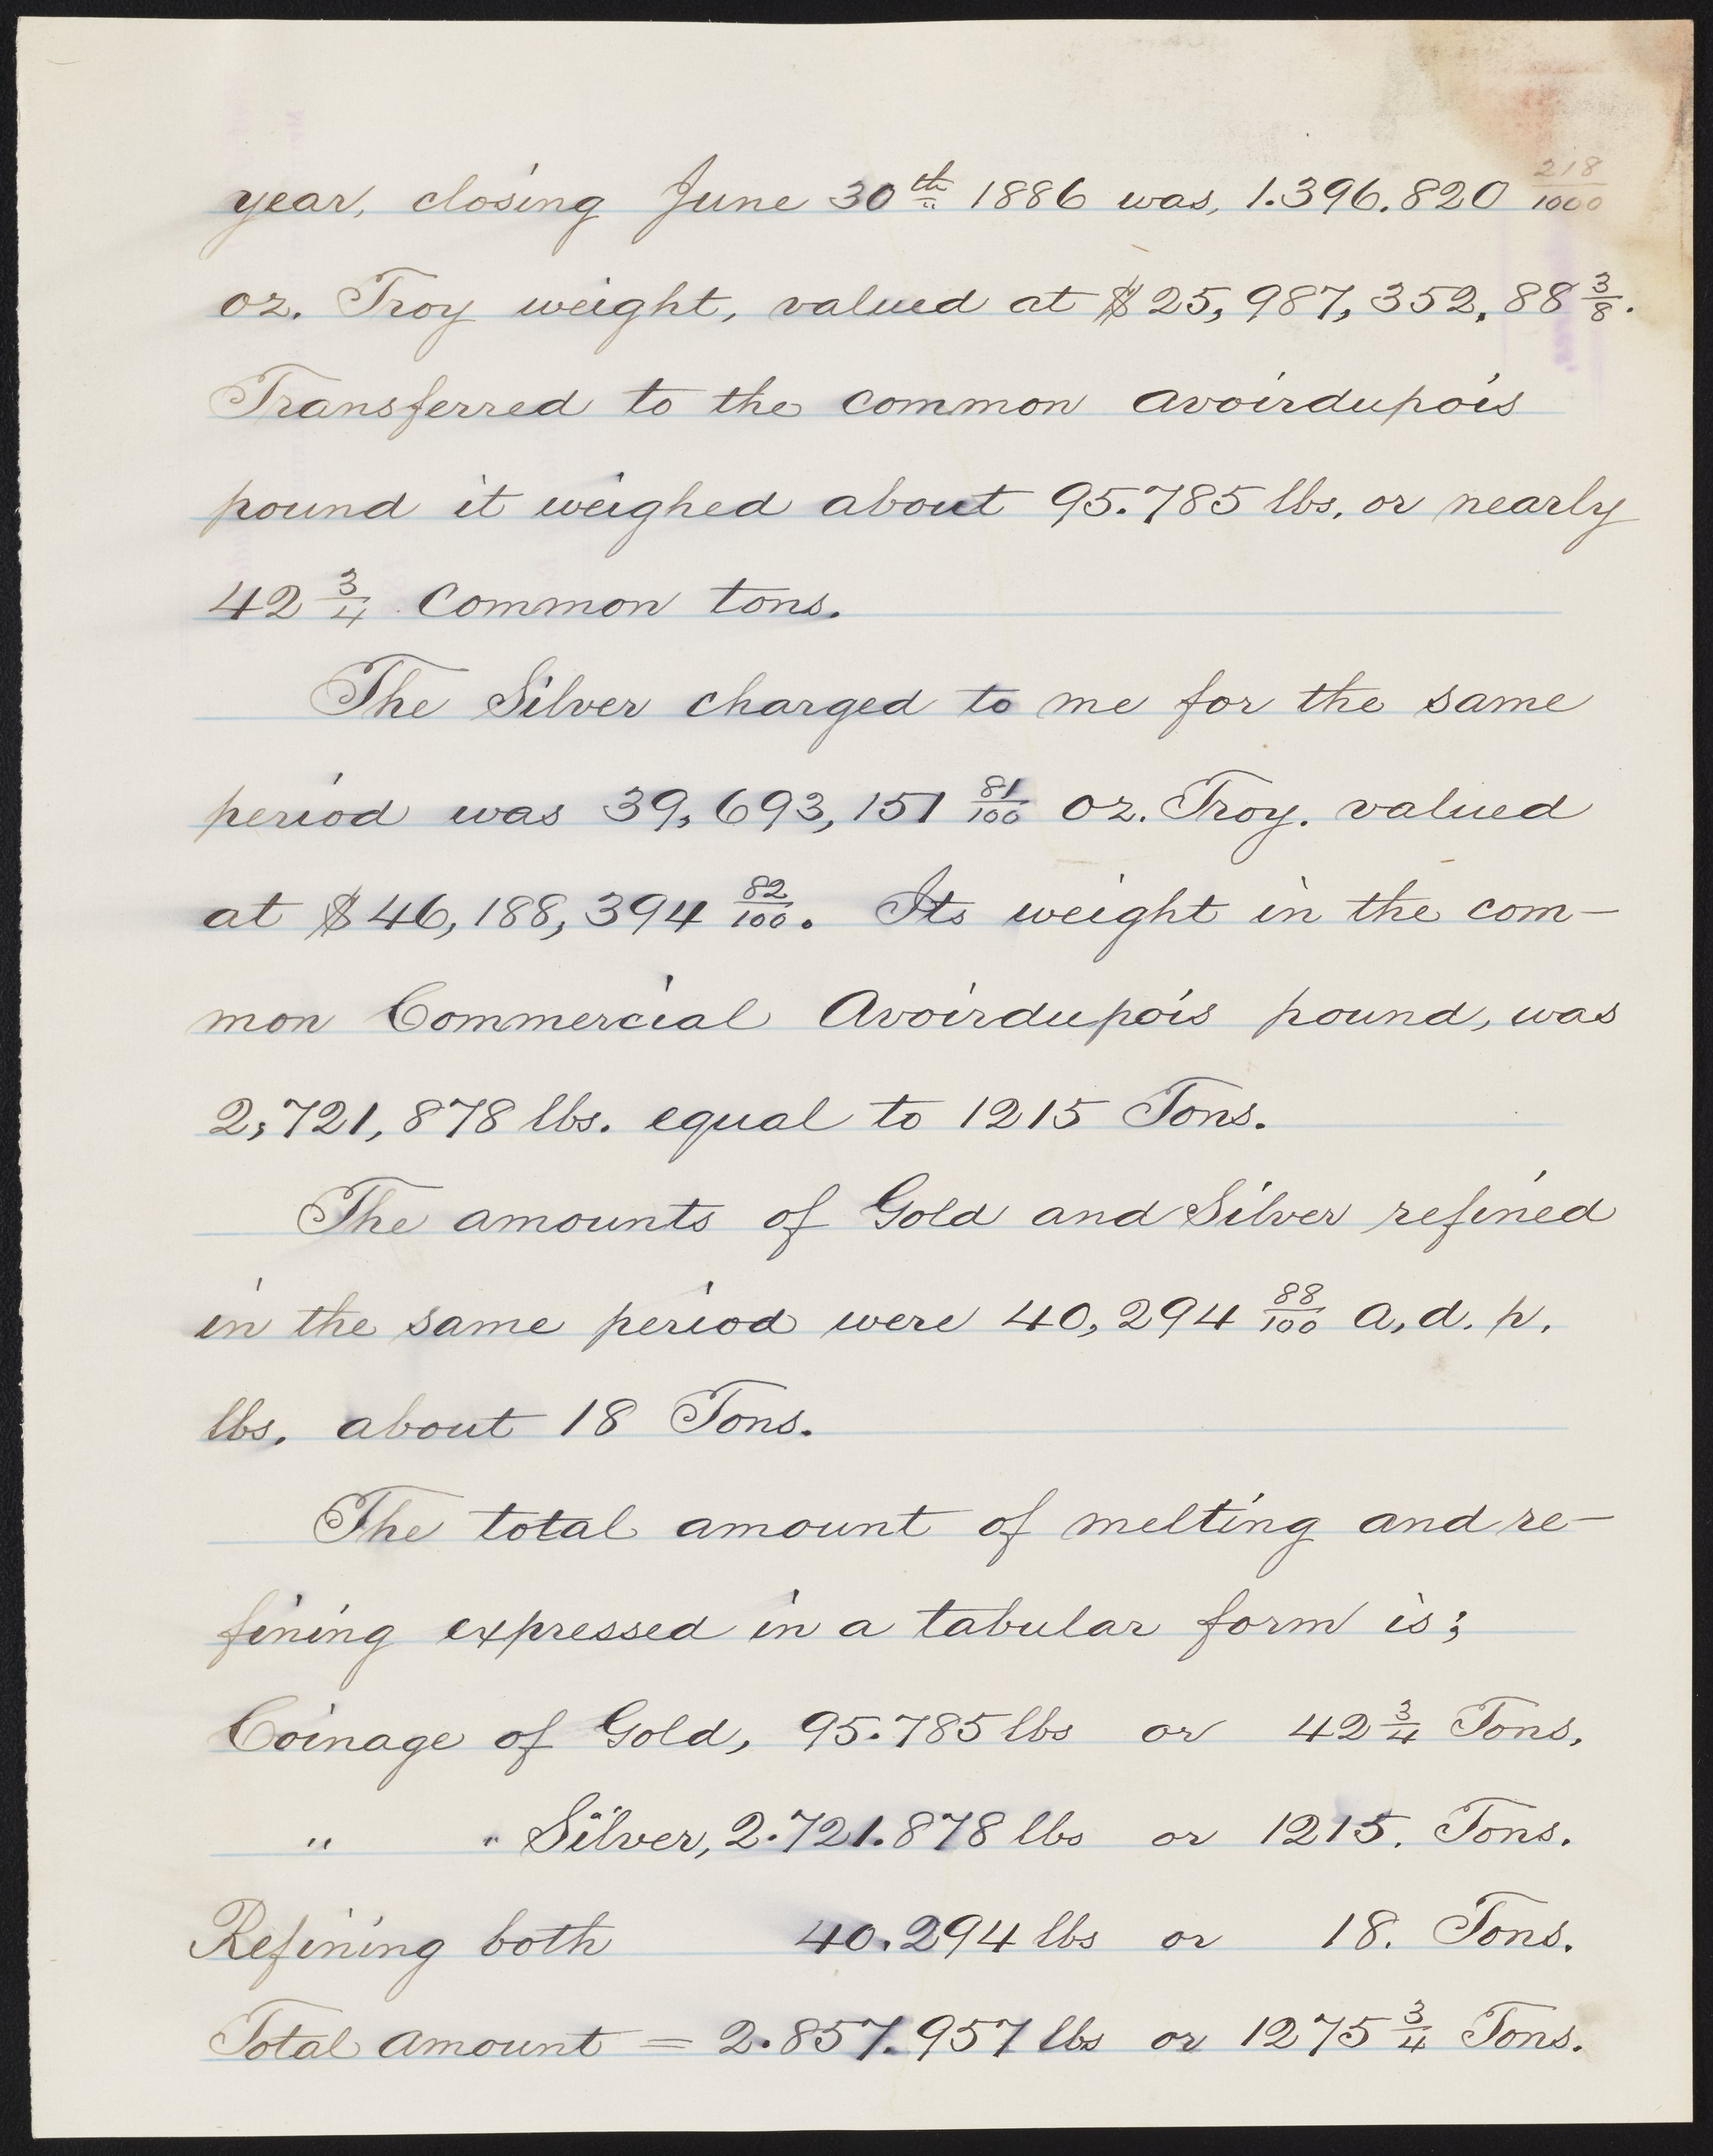 year, closing June 30th 1886 was, 1.396.820 218/1000
oz. Troy weight, valued at $25,987,352.88 3/8.
Transferred to the common avoirdupois
pound it weighed about 95.785 lbs, or nearly
42 3/4 common tons.
The Silver charged to me for the same
period was 39,693,151 81/100 oz. Troy. valued
at $46,188,394 82/100. Its weight in the com-
mon Commercial Avoirdupois pound, was
2,721,878 lbs. equal to 1215 Tons.
The amounts of Gold and Silver refined
in the same period were 40,294 88/100 a,d.p.
lbs, about 18 Tons.
The total amount of melting and re-
fining expressed in a tabular form is;
Coinage of Gold, 95.785 lbs or 42 3/4 Tons,
" " Silver, 2.721.878 lbs or 1215. Tons.
Refining both 40.294 lbs or 18. Tons.
Total amount = 2.857.957 lbs or 1275 3/4 Tons.